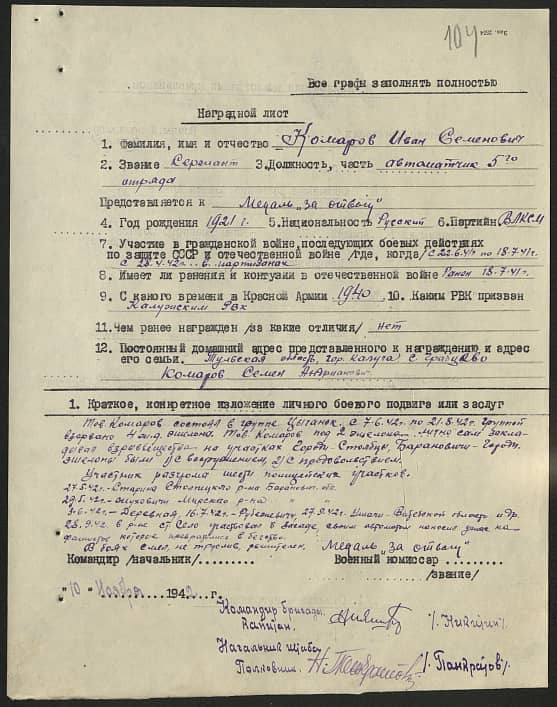 104
Все графы заполнять полностью
Наградной лист
1. Фамилия, имя и отчество Комаров Иван Семенович
2. Звание Сержант 3.Должность, часть автоматчик 5го
отряда
Представляется к Медаль „За отвагу"
4. Год рождения 1921 г. 5.Национальность Русский 6.Партийн ВЛКСМ
7. Участие в гражданской войне,последующих боевых действиях
по защите СССР и отечественной войне /где, когда/ с 22.6.41г по 18.7.41г.
с 28.4.42г. в партизанах
8. Имеет ли ранения и контузии в отечественной войне Ранен 18.7.41г.
9. С какого времени в Красной Армии 1940 10. Каким РВК призван
Калужским РВК
11.Чем ранее награжден /за какие отличия/ нет
12. Постоянный домашний адрес представленного к награждению и адрес
его семьи. Тульская область, гор. Калуга с
Комаров Семен
1. Краткое, конкретное изложение личного боевого подвига или заслуг
Тов. Комаров состоял в группе Цыганок, с 7.6.42г. по 21.8.42г. группой
взорвано 4 эшелона. Тов. Комаров под 2 эшелона лично сам закла-
дывал взрыввещества на участках Столбцы, Барановичи
эшелоны были 1/С вооружением, 2/С продовольствием.
Участник разгрома шести полицейских участков.
27.5.42г.- Старина Столпецкого р-на
29.5.42г.- Жуховичи Мирского р-на
3.6.42г.- Деревная, 16.7.42г.- Рубежевичи, 27.9.42г. области и др.
28.9.42. в р-не ст. Село участвовал в засаде, своим автоматом наносил удар
фашисты которое превратились в бегство.
В боях смел, не труслив, решителен. Медаль „За отвагу"
Командир /начальник/......... Военный комиссар ..........
/звание/
"10" Ноября 1942 г.
Командир бригады
капитан /. Никитин/.
Начальник штаба
Полковник /. Панкратов/.